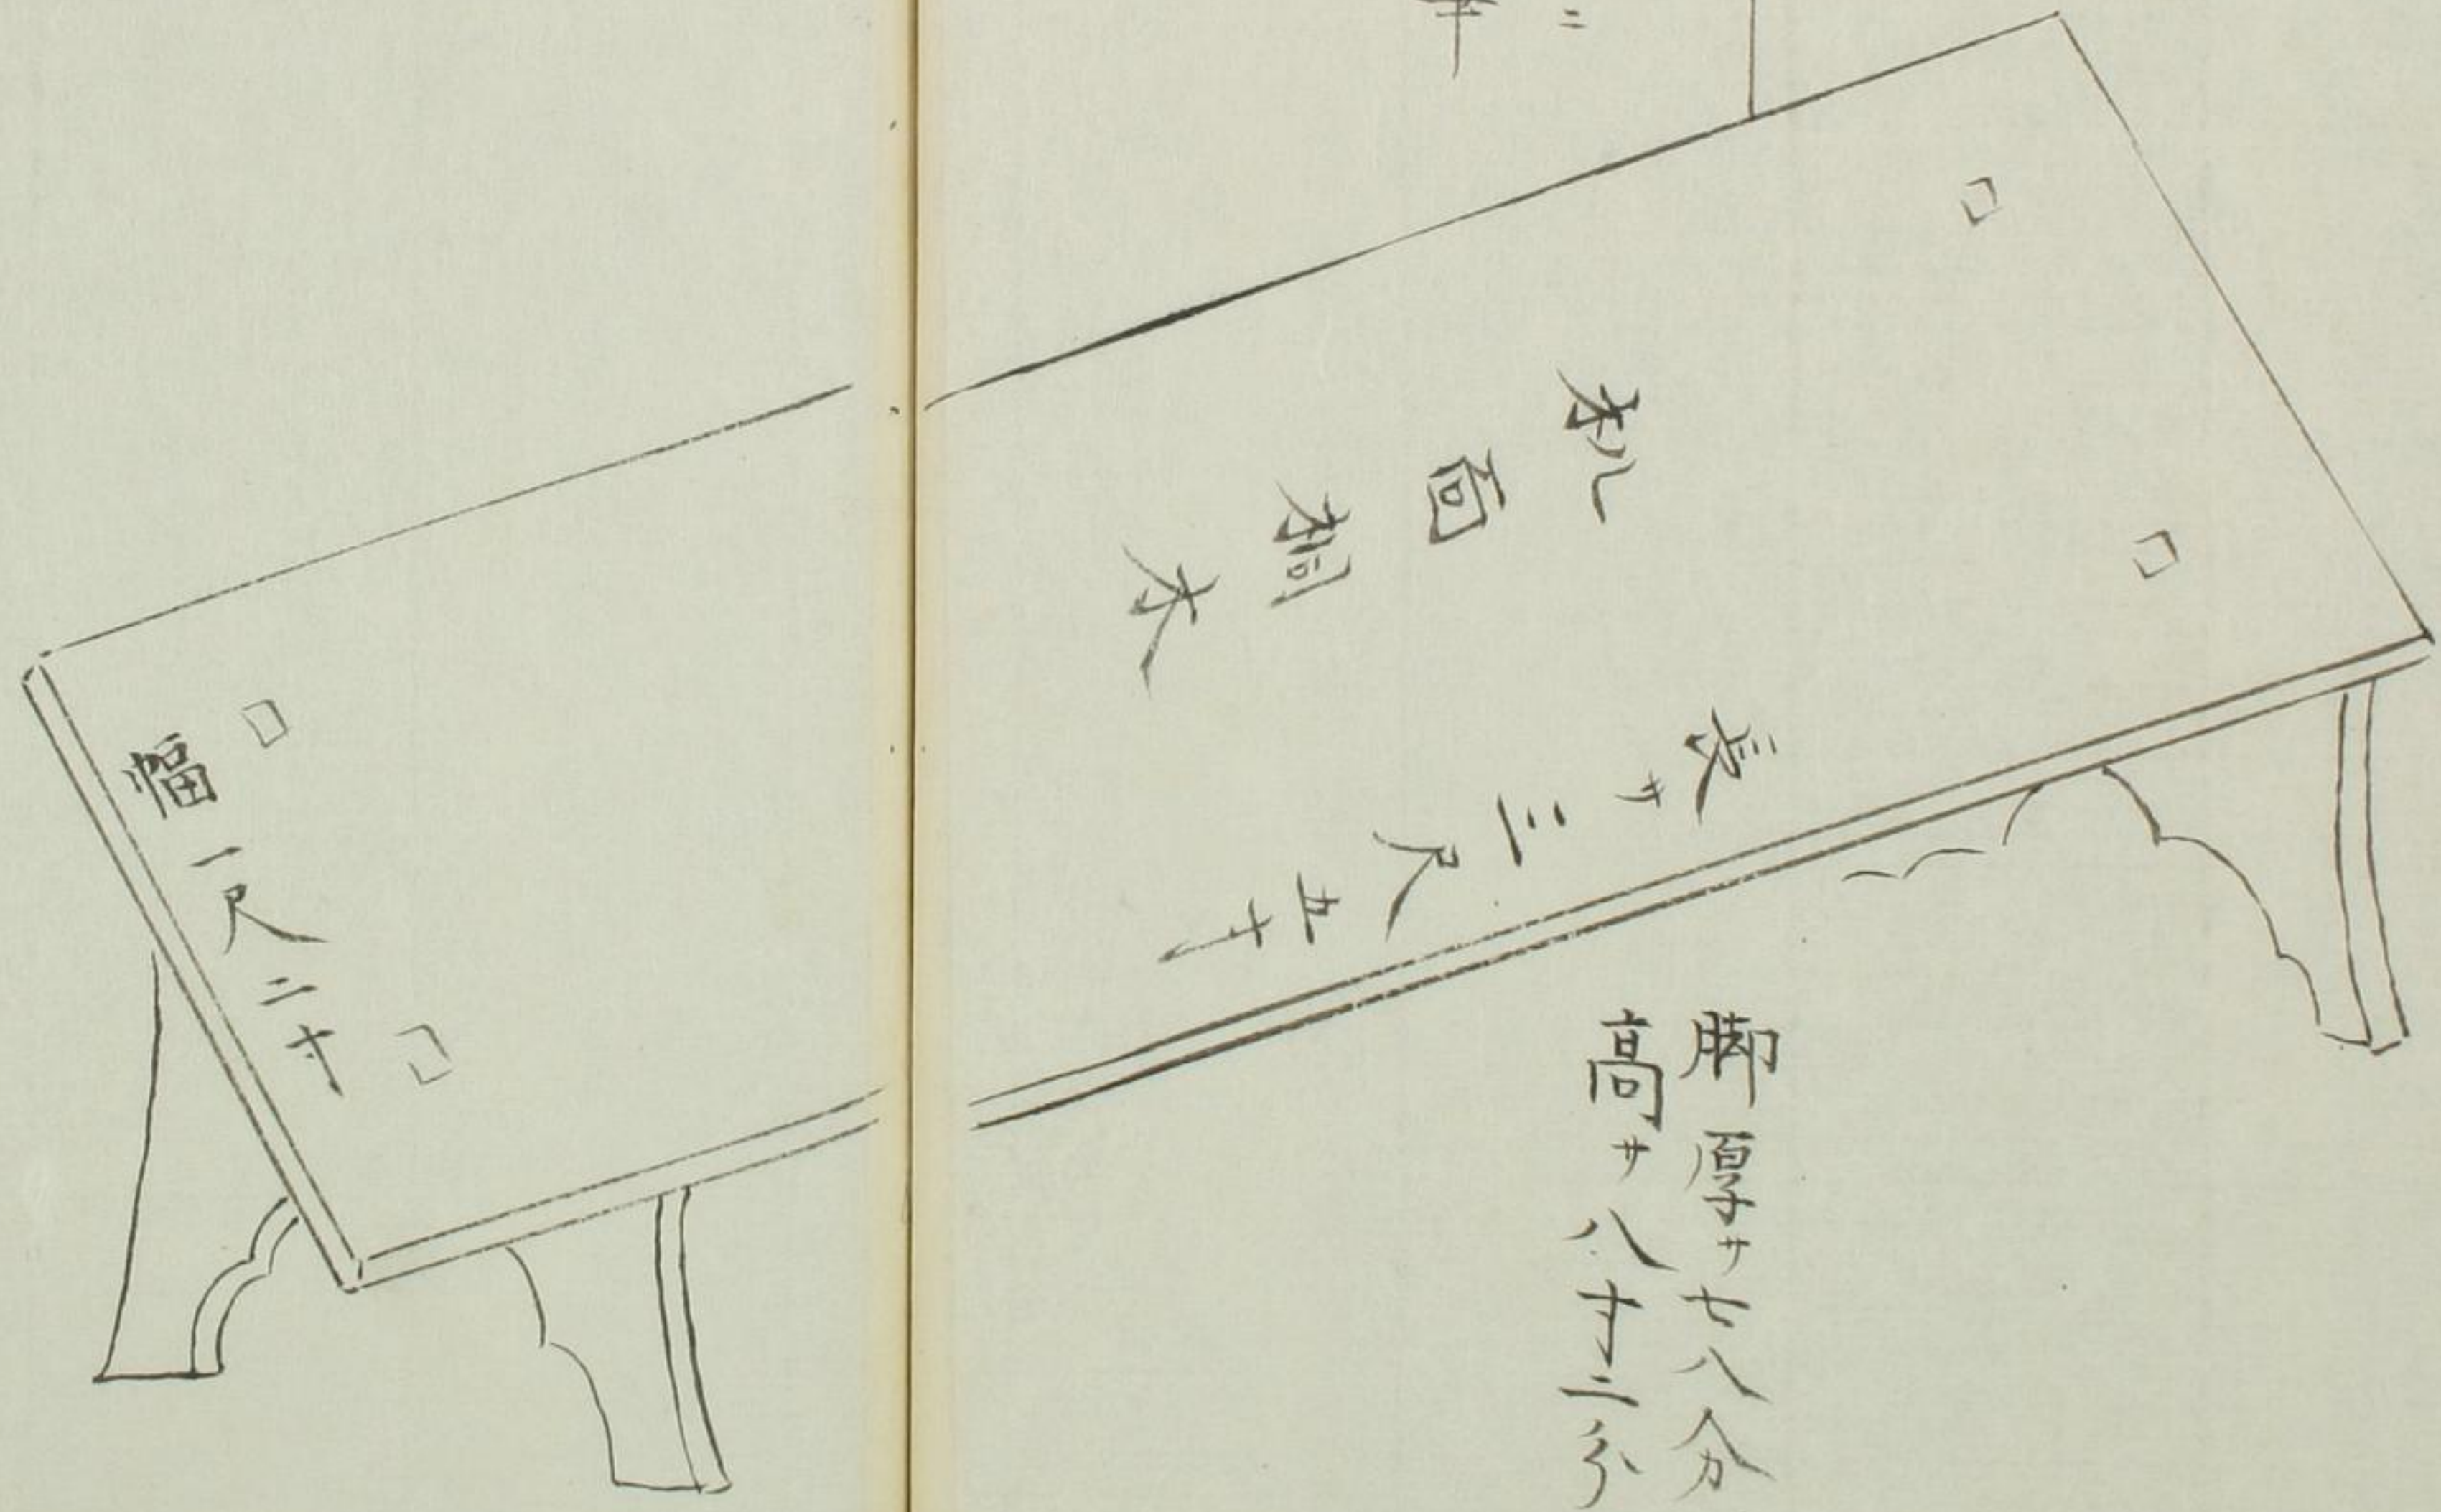 机面桐木
長サ三尺五寸
脚厚サ七八分
高サ八寸二分
幅一尺二寸